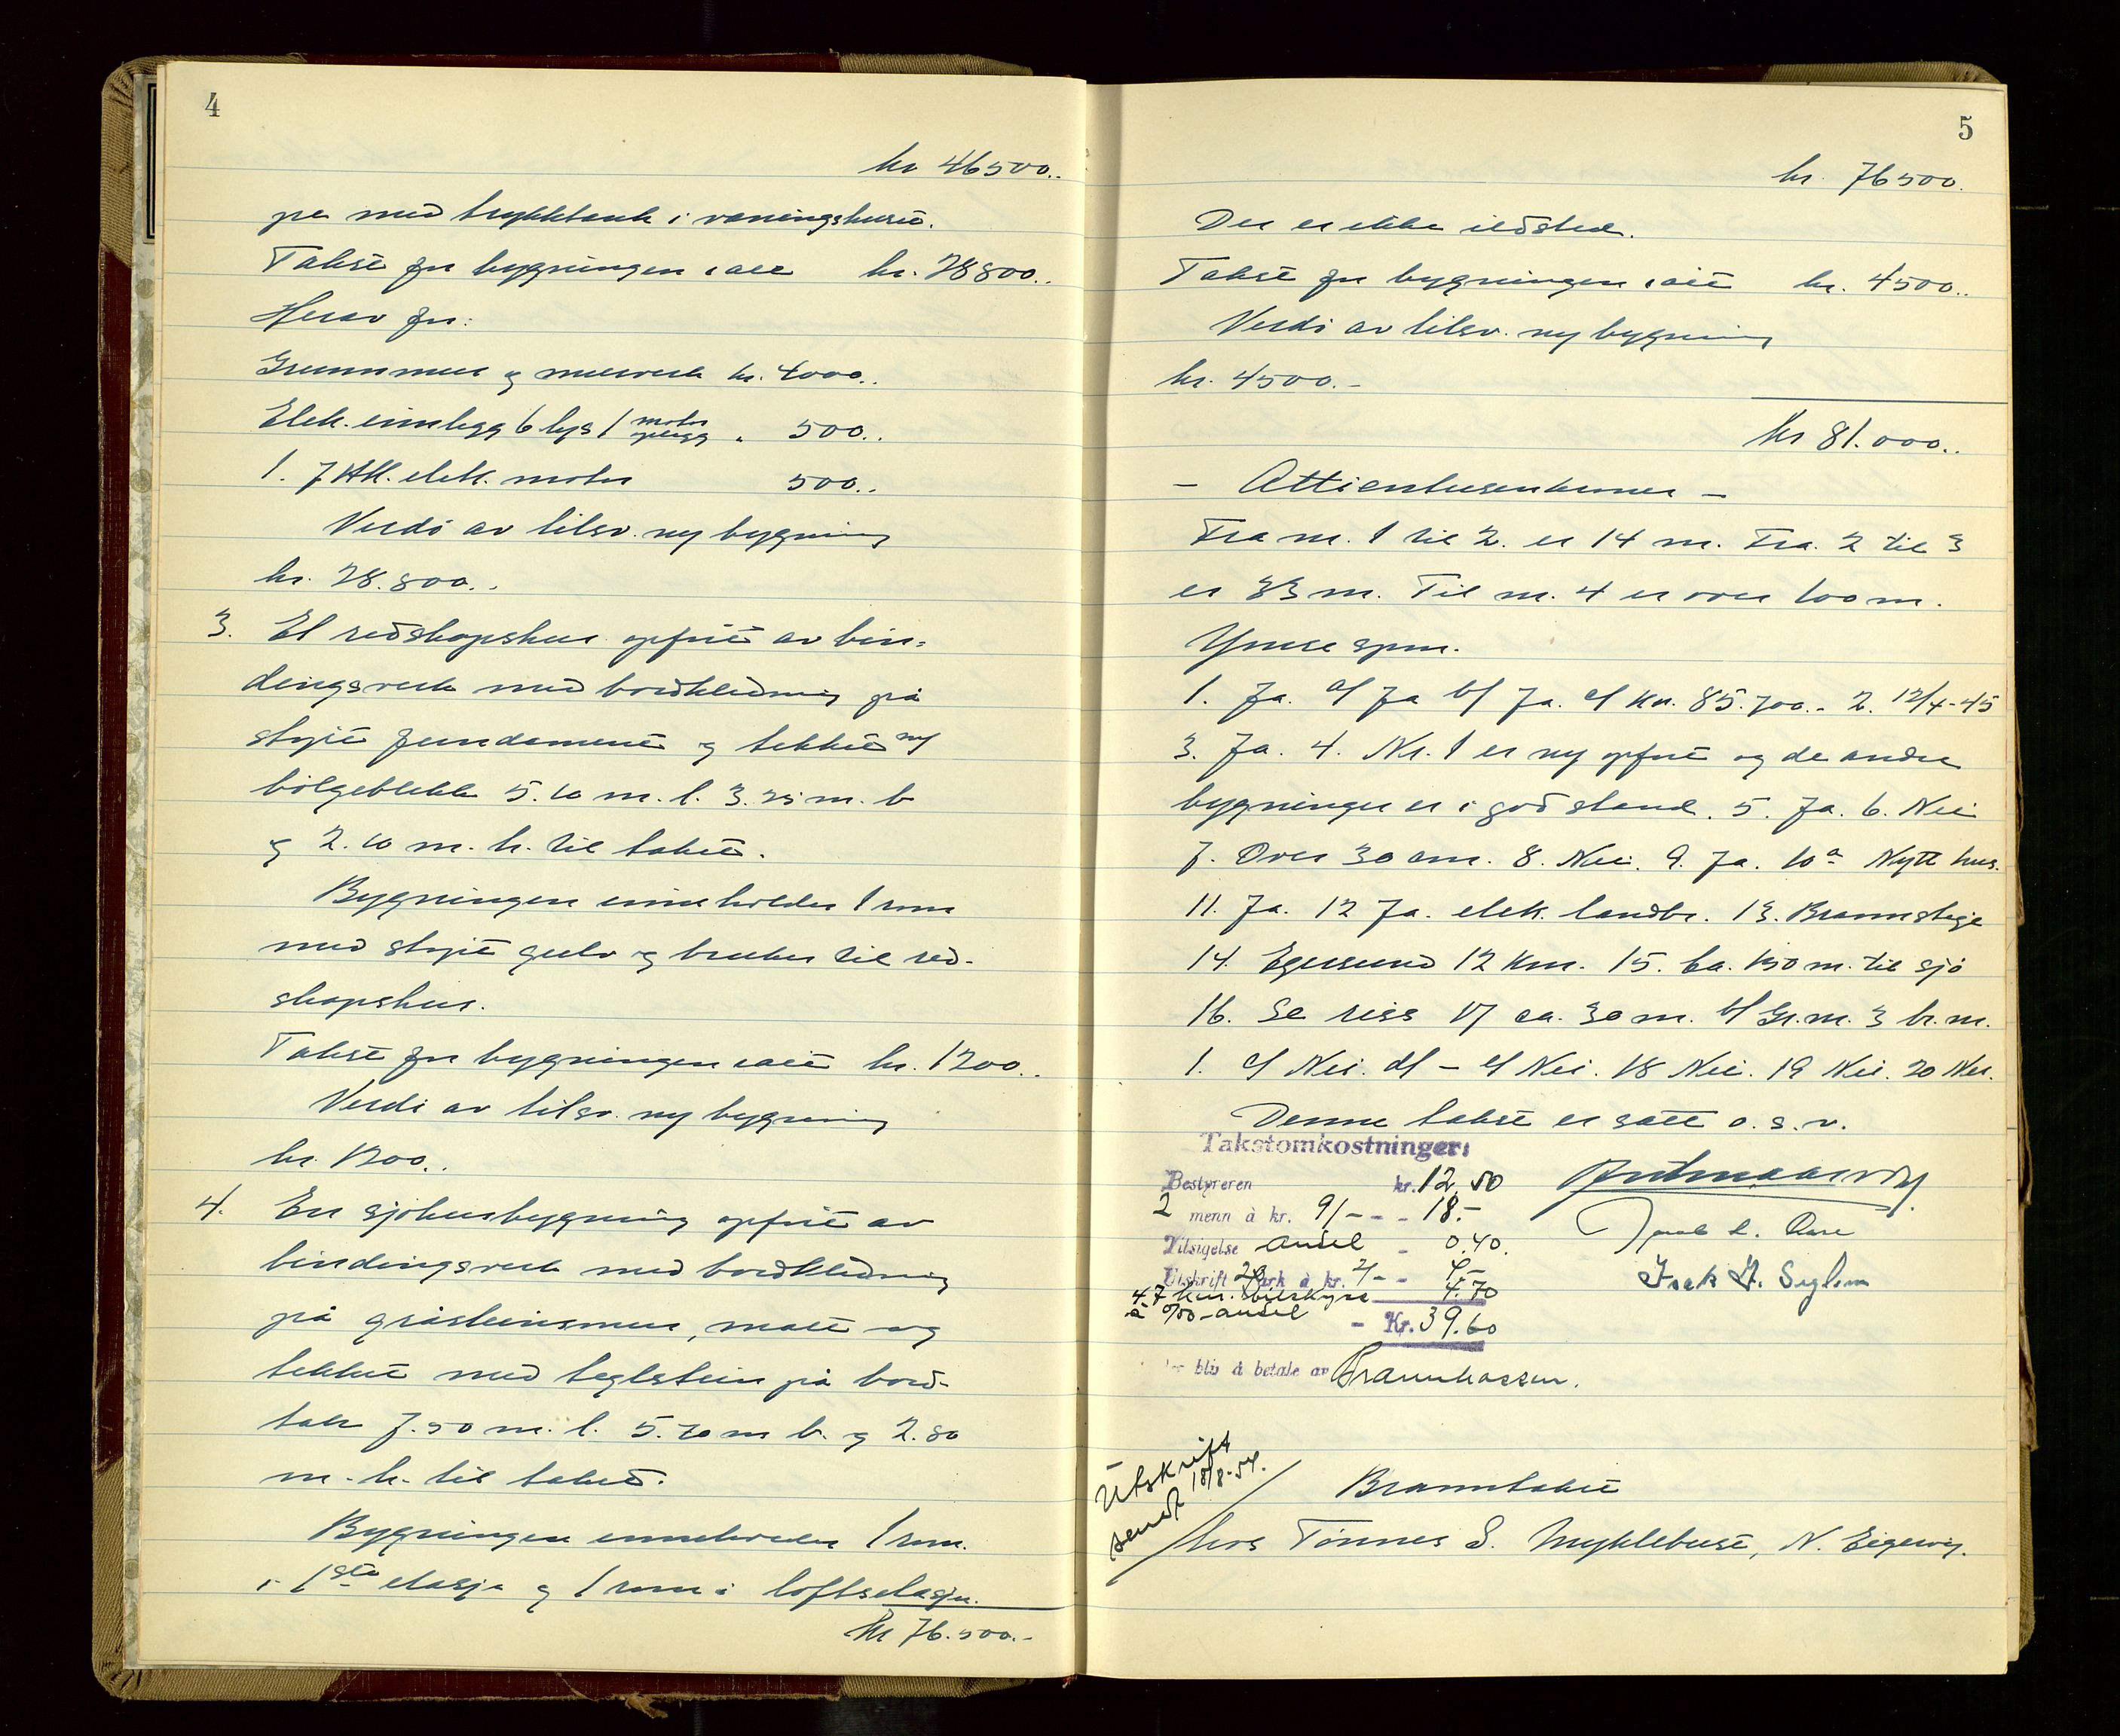 4
kr 46500..
pe med trykktank i våningshuset.
Takst for bygningen i alt kr. 28800..
Herav for:
Grunnmur og murverk kr. 4000..
Elek. innlegg 6 lys 1 motor opplegg " 500..
1. 7 HK. elek. motor 500..
Verdi av tilsv. ny bygning
kr. 28.800..
3. Et redskapshus opført av bin-
dingsverk med bordkledning på
støpt fundament og tekket ny
bølgeblekk 5.10 m. l. 3.25 m. b
og 2.10 m. h. til taket.
Bygningen inneholder 1 rom
med støpt gulv og brukes til red-
skapshus.
Takst for bygningen i alt kr. 1200..
Verdi av tilsv. ny bygning
kr. 1200..
4. En sjøhusbygning opført av
bindingsverk med bordkledning
på gråsteinsmur, malt og
tekket med teglstein på bord-
tak 7.50 m. l. 5.70 m b. og 2.80
m. h. til taket.
Bygningen inneholder 1 rom.
i 1ste etasje og 1 rom i loftsetasjen.
Kr 76.500.-
5
kr. 76500.
Der er ikke ildsted.
Takst for bygningen i alt kr. 4500..
Verdi av tilsv. ny bygning
kr. 4500.-
Kr 81.000..
- Attientusenkroner -
Fra m. 1 til 2. er 14 m. Fra. 2 til 3
er 33 m. Til m. 4 er over 100 m.
Ymse spm.
1. Ja. a/ Ja b/ Ja. c/ Kr. 85.700.- 2. 12/4-45
3. Ja. 4. Nr. 1 er ny opført og de andre
bygninger er i god stand. 5. Ja. 6. Nei
7. Over 30 cm. 8. Nei. 9. Ja. 10a Nytt hus.
11. Ja. 12 Ja. elek. landbr. 13. Brannstige
14. Egersund 12 Km. 15. Ca. 150 m. til sjø
16. Se riss 17 ca. 30 m. b/ Gr. m. 3 br. m.
1. c/ Nei. d/ - e/ Nei. 18 Nei. 19 Nei. 20 Nei.
Denne takst er satt o. s. v.
Takstomkostninger:
Bestyreren kr. 12.50
2 menn à kr. 9/- - - 18.-
Tilsigelse andel - 0.40.
Utskrift 2 ark à kr. 2/- - 4.-
47 km. bilskyss 4.70
à 0/50 - andel
- Kr. 39.60
bliv å betale av Brannkassen.
Isak I. Seglem
Utskrift
sendt 18/8-54.
Branntakst
hos Tønnes S. Myklebust, N. Eigerøy.